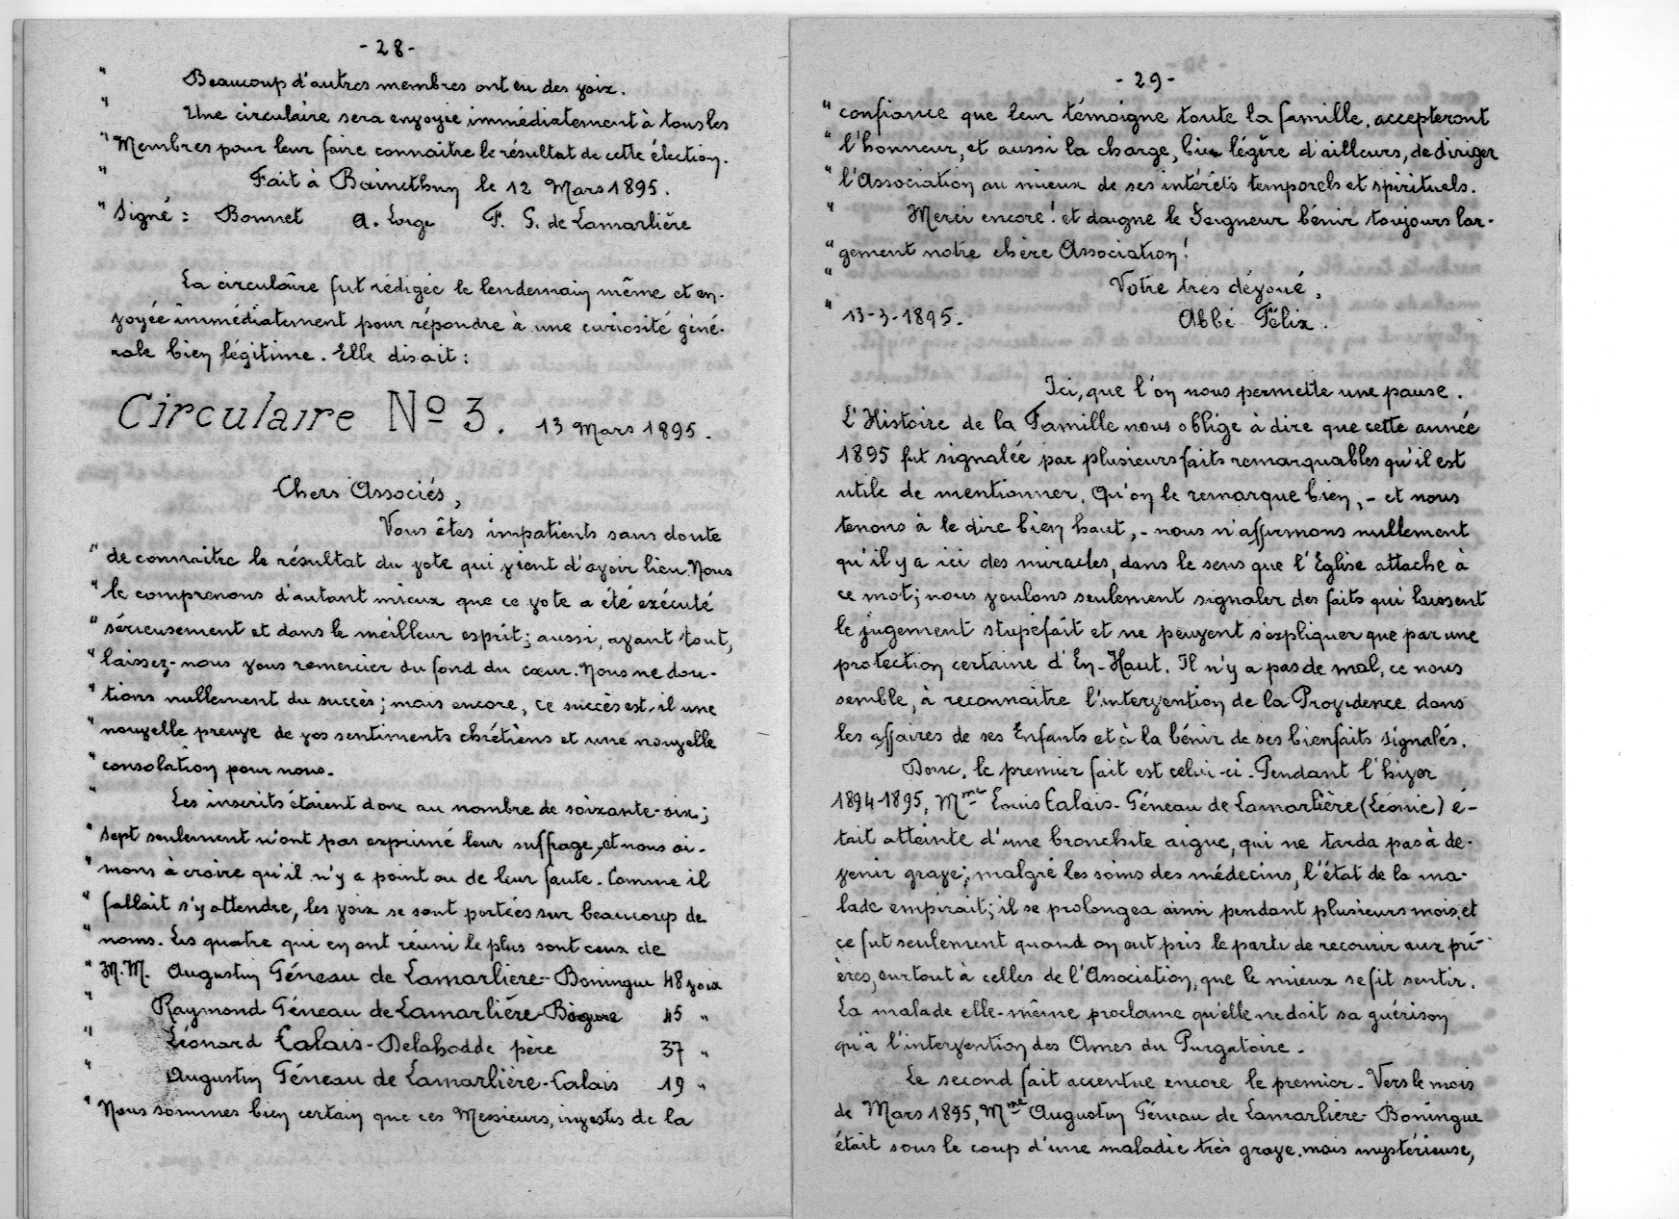 - 28 -
" Beaucoup d'autres membres ont eu des voix.
" Une circulaire sera envoyée immédiatement à tous les
" Membres pour leur faire connaitre le résultat de cette élection.
" Fait à Bainethun le 12 Mars 1895.
" Signé : Bonnet A. Lorge F. G. de Lamarlière
La circulaire fut rédigée le lendemain même et en-
voyée immédiatement pour répondre à une curiosité géné-
rale bien légitime. Elle disait :
Circulaire Nº 3. 13 Mars 1895.
Chers Associés,
Vous êtes impatients sans doute
" de connaitre le résultat du vote qui vient d'avoir lieu. Nous
" le comprenons d'autant mieux que ce vote a été exécuté
" sérieusement et dans le meilleur esprit ; aussi, avant tout,
" laissez-nous vous remercier du fond du cœur. Nous ne dou-
" tions nullement du succès ; mais encore, ce succès est-il une
" nouvelle preuve de vos sentiments chrétiens et une nouvelle
" consolation pour nous.
" Les inscrits étaient donc au nombre de soixante-six ;
" sept seulement n'ont pas exprimé leur suffrage, et nous ai-
" mons à croire qu'il n'y a point eu de leur faute. Comme il
" fallait s'y attendre, les voix se sont portées sur beaucoup de
" noms. Les quatre qui en ont réuni le plus sont ceux de
" M.M. Augustin Géneau de Lamarlière-Boningue 48 voix
" Raymond Géneau de Lamarlière- 45 "
" Léonard Calais-Delahodde père 37 "
" Augustin Géneau de Lamarlière-Calais 19 "
" Nous sommes bien certain que ces Messieurs, investis de la
- 29 -
" confiance que leur témoigne toute la famille, accepteront
" l'honneur, et aussi la charge, bien légère d'ailleurs, de diriger
" l'Association au mieux de ses intérêts temporels et spirituels.
" Merci encore ! et daigne le Seigneur bénir toujours lar-
" gement notre chère Association !
" Votre très dévoué,
" 13-3-1895. Abbé Félix.
Ici, que l'on nous permette une pause.
L'Histoire de la Famille nous oblige à dire que cette année
1895 fut signalée par plusieurs faits remarquables qu'il est
utile de mentionner. Qu'on le remarque bien, - et nous
tenons à le dire bien haut, - nous n'affirmons nullement
qu'il y a ici des miracles, dans le sens que l'Eglise attache à
ce mot ; nous voulons seulement signaler des faits qui laissent
le jugement stupéfait et ne peuvent s'expliquer que par une
protection certaine d'En-Haut. Il n'y a pas de mal, ce nous
semble, à reconnaitre l'intervention de la Providence dans
les affaires de ses Enfants et à la bénir de ses bienfaits signalés.
Donc, le premier fait est celui-ci. Pendant l'hiver
1894-1895, Mme Louis Calais-Géneau de Lamarlière (Léonie) é-
tait atteinte d'une bronchite aigue, qui ne tarda pas à de-
venir grave ; malgré les soins des médecins, l'état de la ma-
lade empirait ; il se prolongea ainsi pendant plusieurs mois, et
ce fut seulement quand on eut pris le parti de recourir aux pri-
ères, surtout à celles de l'Association, que le mieux se fit sentir.
La malade elle-même proclame qu'elle ne doit sa guérison
qu'à l'intervention des Ames du Purgatoire.
Le second fait accentue encore le premier. Vers le mois
de Mars 1895, Mme Augustin Géneau de Lamarlière-Boningue
était sous le coup d'une maladie très grave, mais mystérieuse,